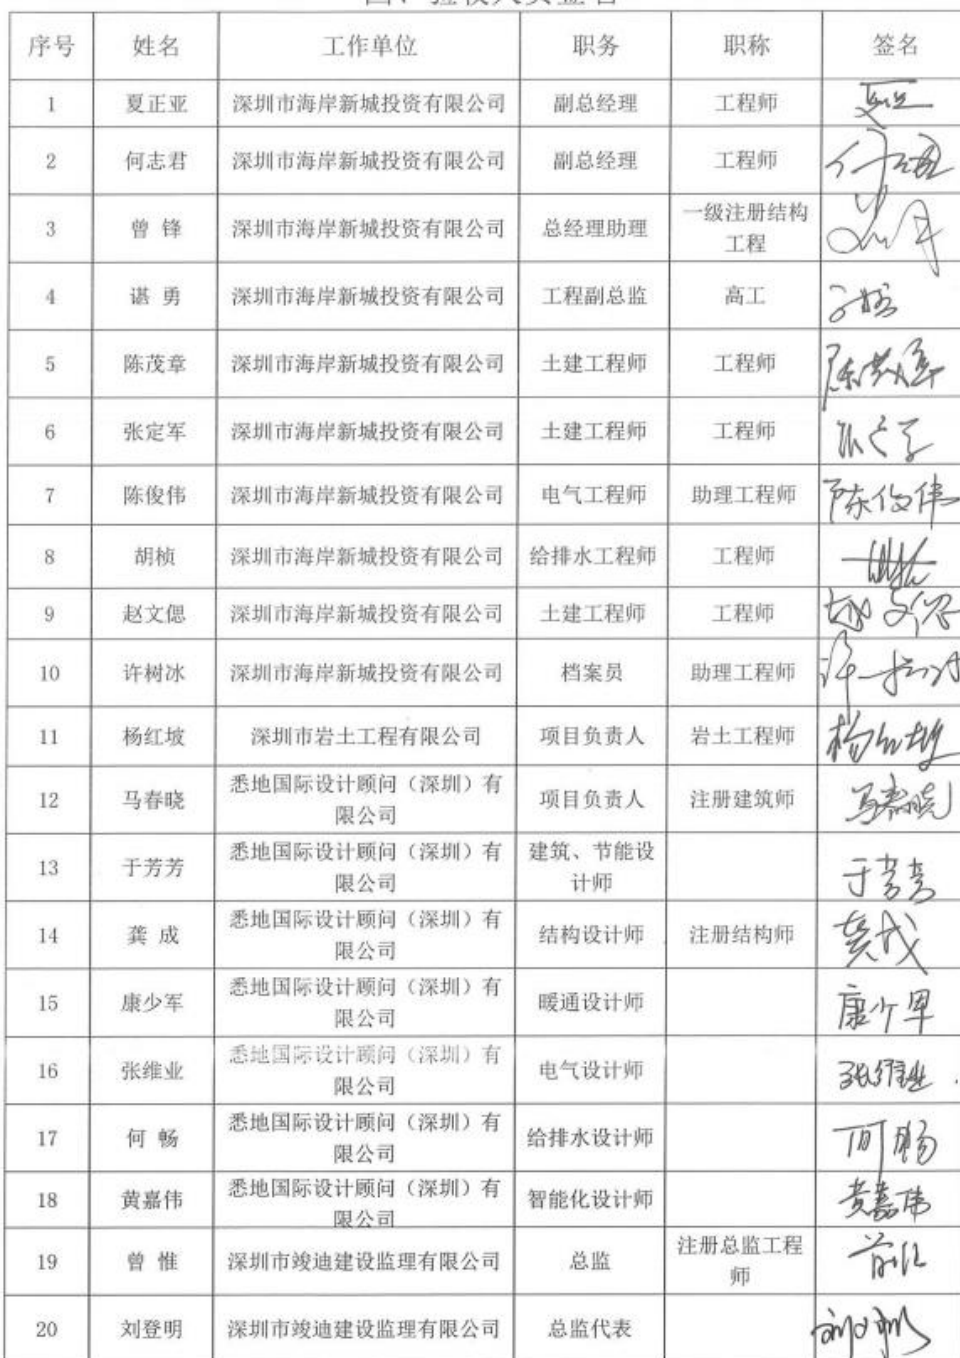 四、验收人员签名
序号 姓名 工作单位 职务 职称 签名
1 夏正亚 深圳市海岸新城投资有限公司 副总经理 工程师
2 何志君 深圳市海岸新城投资有限公司 副总经理 工程师
3 曾 锋 深圳市海岸新城投资有限公司 总经理助理 一级注册结构
工程
4 谌 勇 深圳市海岸新城投资有限公司 工程副总监 高工
5 陈茂章 深圳市海岸新城投资有限公司 土建工程师 工程师 陈茂章
6 张定军 深圳市海岸新城投资有限公司 土建工程师 工程师
7 陈俊伟 深圳市海岸新城投资有限公司 电气工程师 助理工程师 陈俊伟
8 胡桢 深圳市海岸新城投资有限公司 给排水工程师 工程师
9 赵文偲 深圳市海岸新城投资有限公司 土建工程师 工程师 赵文偲
10 许树冰 深圳市海岸新城投资有限公司 档案员 助理工程师
11 杨红坡 深圳市岩土工程有限公司 项目负责人 岩土工程师 杨红坡
12 马春晓 悉地国际设计顾问（深圳）有
限公司 项目负责人 注册建筑师 马春晓
13 于芳芳 悉地国际设计顾问（深圳）有
限公司 建筑、节能设
计师 于芳芳
14 龚 成 悉地国际设计顾问（深圳）有
限公司 结构设计师 注册结构师 龚成
15 康少军 悉地国际设计顾问（深圳）有
限公司 暖通设计师 康少军
16 张维业 悉地国际设计顾问（深圳）有
限公司 电气设计师 张维业
17 何 畅 悉地国际设计顾问（深圳）有
限公司 给排水设计师 何畅
18 黄嘉伟 悉地国际设计顾问（深圳）有
限公司 智能化设计师 黄嘉伟
19 曾 惟 深圳市竣迪建设监理有限公司 总监 注册总监工程
师
20 刘登明 深圳市竣迪建设监理有限公司 总监代表